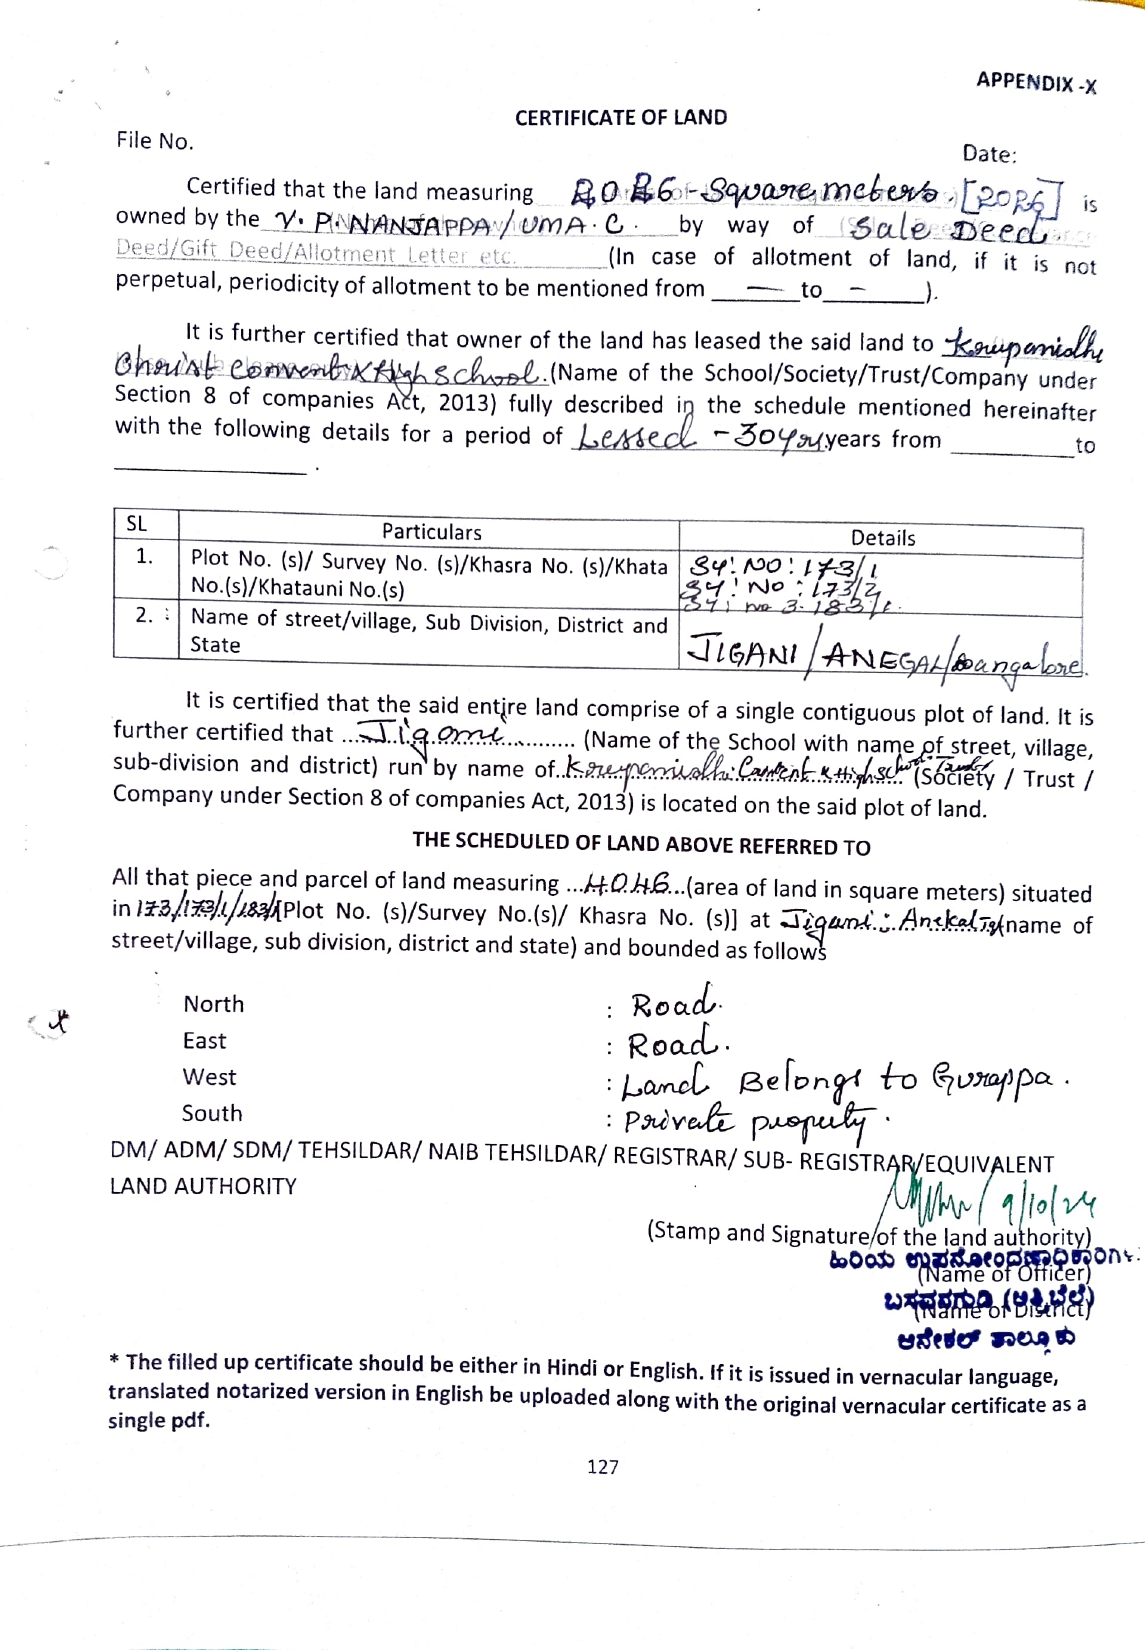 APPENDIX -X
CERTIFICATE OF LAND
File No.
Date:
Certified that the land measuring 2026 - Square meters. [2026] is
owned by the V. P. NANJAPPA / UMA. C. by way of Sale Deed.
Deed/Gift Deed/Allotment Letter etc. (In case of allotment of land, if it is not
perpetual, periodicity of allotment to be mentioned from — to - ).
It is further certified that owner of the land has leased the said land to
Christ Convent & High School. (Name of the School/Society/Trust/Company under
Section 8 of companies Act, 2013) fully described in the schedule mentioned hereinafter
with the following details for a period of Lessed - 30 years from ________ to
________ .
SL Particulars Details
1. Plot No. (s)/ Survey No. (s)/Khasra No. (s)/Khata Sy: NO: 173/1
No.(s)/Khatauni No.(s) Sy: No: 173/2
Sy: no 3. 183/1.
2. : Name of street/village, Sub Division, District and
State JIGANI / ANEGAL / Bangalore.
It is certified that the said entire land comprise of a single contiguous plot of land. It is
further certified that ...Jigani............ (Name of the School with name of street, village,
sub-division and district) run by name of.. & High School (Society / Trust /
Company under Section 8 of companies Act, 2013) is located on the said plot of land.
THE SCHEDULED OF LAND ABOVE REFERRED TO
All that piece and parcel of land measuring ...4046...(area of land in square meters) situated
in 173/173/1/183/1 [Plot No. (s)/Survey No.(s)/ Khasra No. (s)] at Jigani : Anekal (name of
street/village, sub division, district and state) and bounded as follows
North : Road.
East : Road.
West : Land Belongs to Gurappa.
South : Private property.
DM/ ADM/ SDM/ TEHSILDAR/ NAIB TEHSILDAR/ REGISTRAR/ SUB- REGISTRAR/EQUIVALENT
LAND AUTHORITY
9/10/24
(Stamp and Signature of the land authority)
ಹಿರಿಯ ಉಪನೋಂದಣಾಧಿಕಾರಿಗಳು
(Name of Officer)
ಬಸವನಗುಡಿ (ಅತ್ತಿಬೆಲೆ)
(Name of District)
ಆನೇಕಲ್ ತಾಲ್ಲೂಕು
* The filled up certificate should be either in Hindi or English. If it is issued in vernacular language,
translated notarized version in English be uploaded along with the original vernacular certificate as a
single pdf.
127